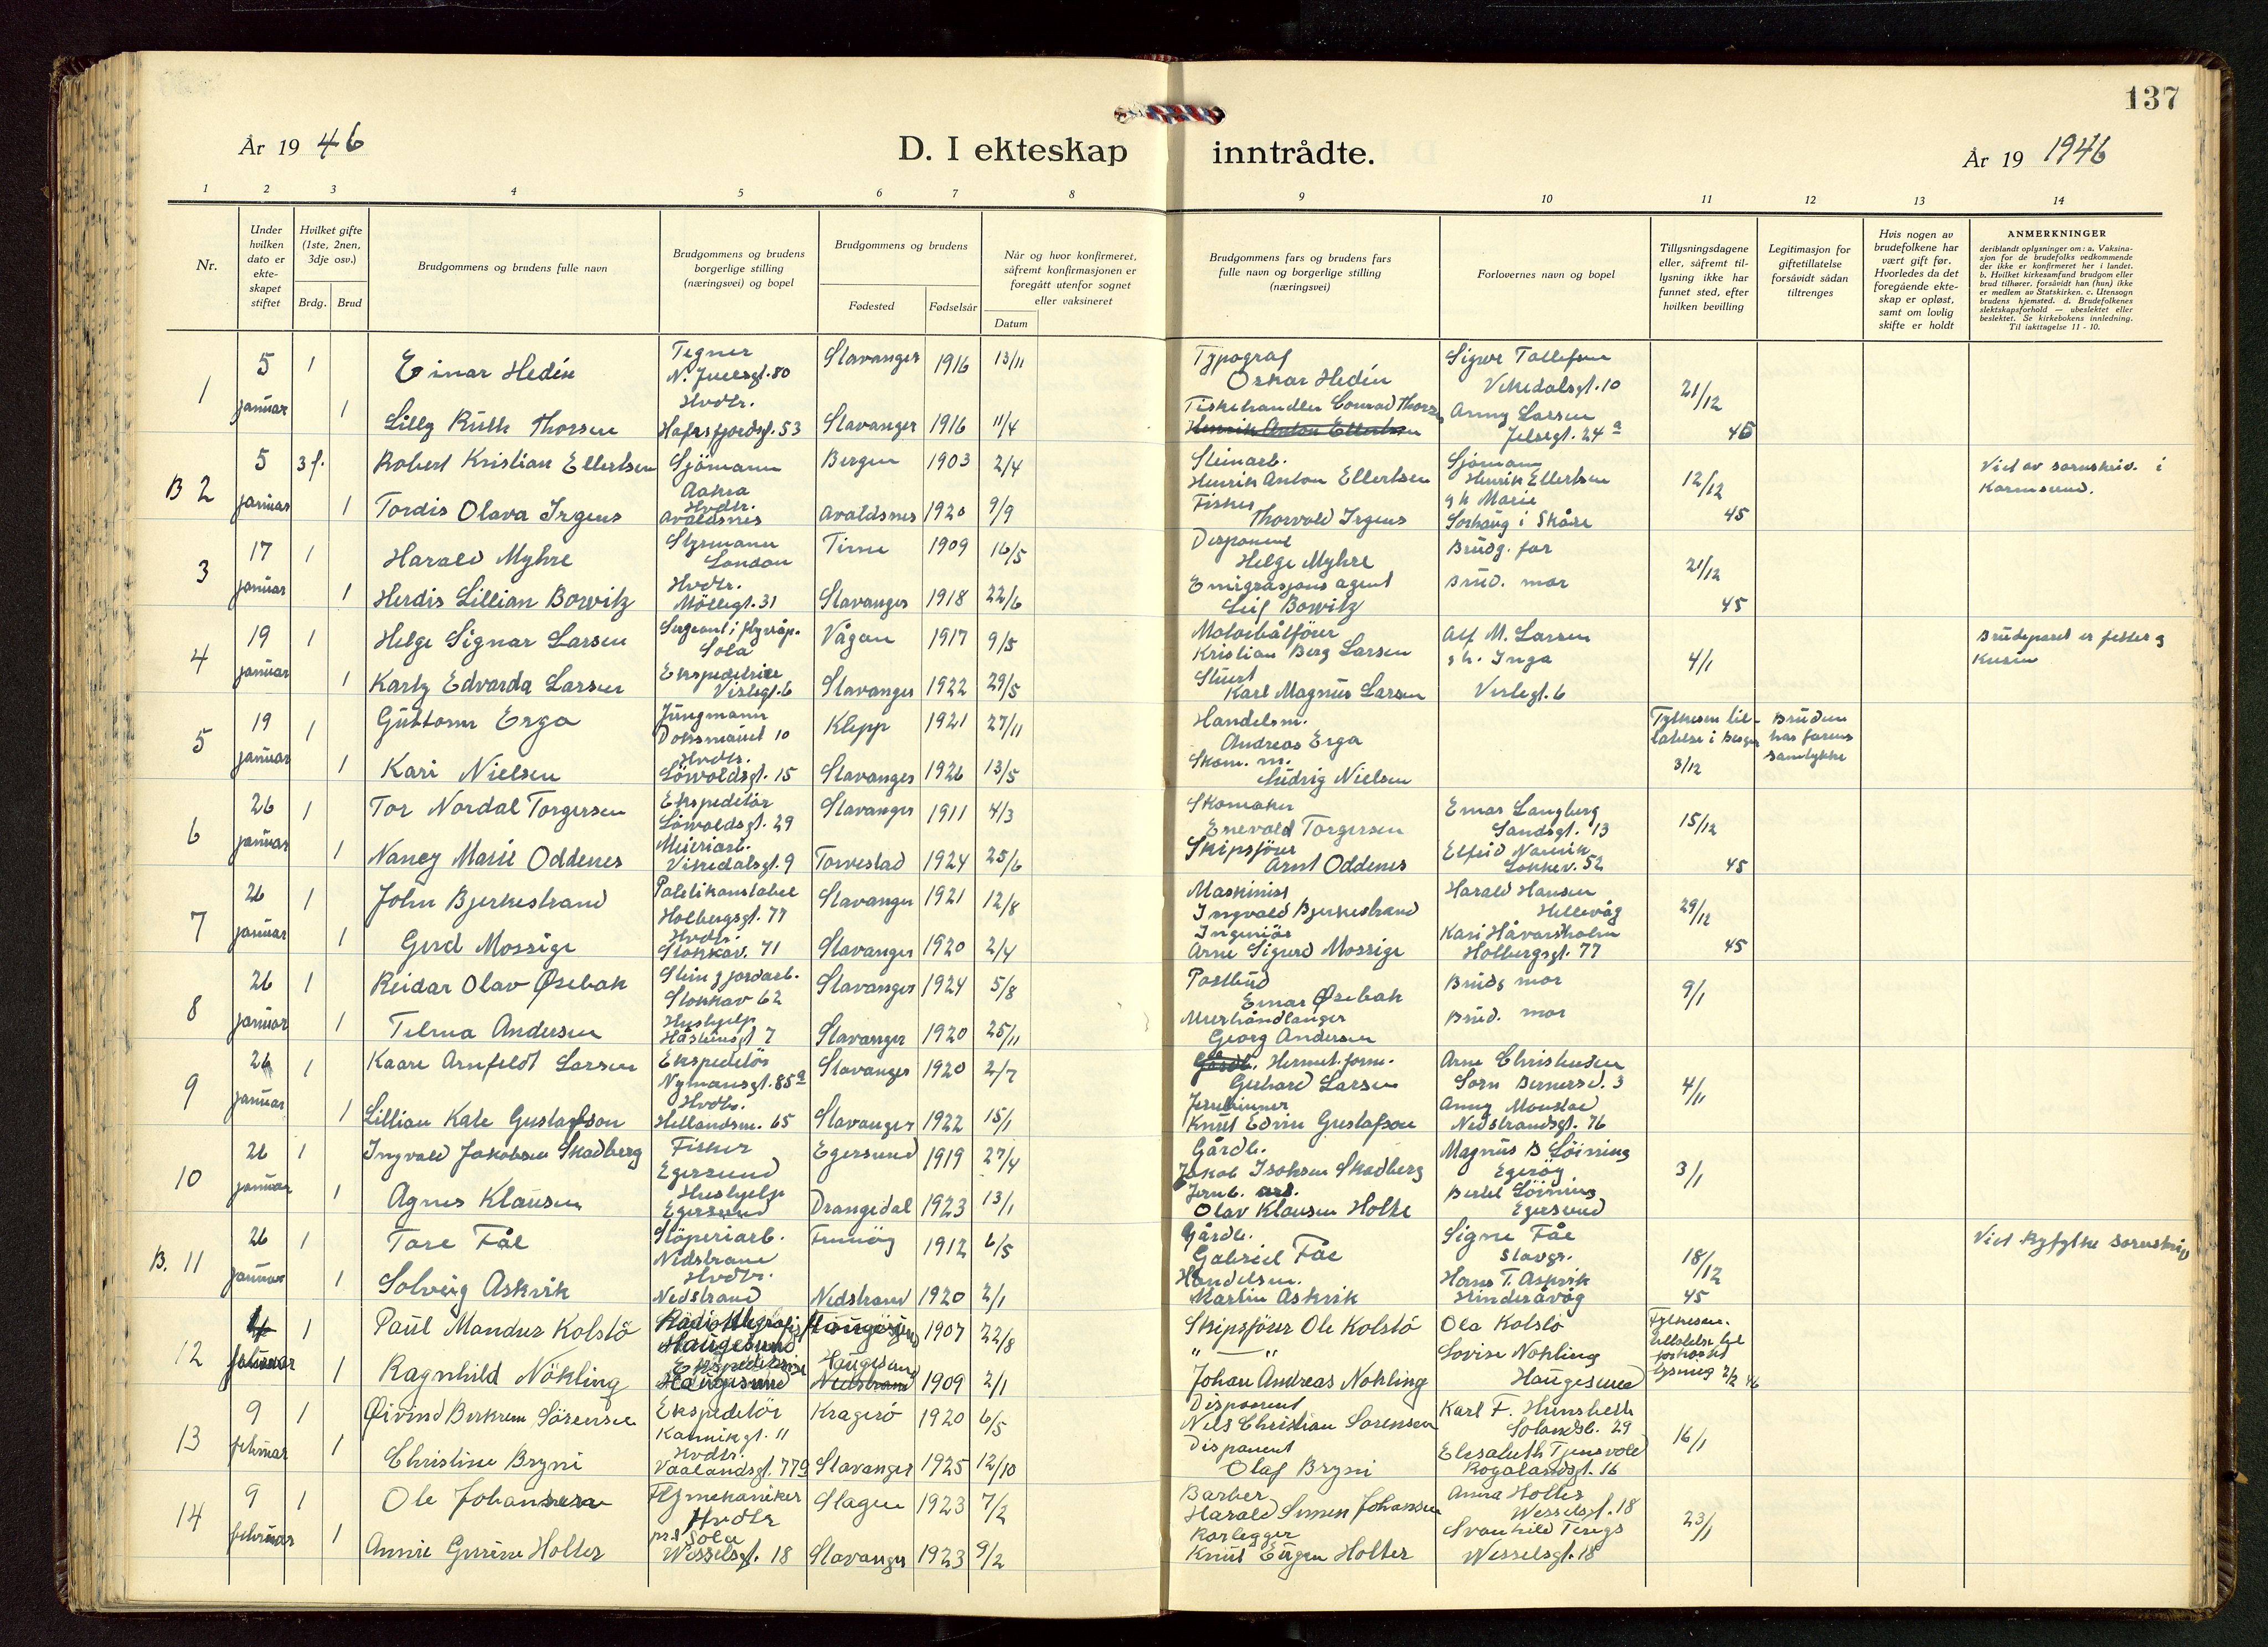 137
År 19 46
D. I ekteskap inntrådte.
År 19 1946
1 2 3 4 5 6 7 8 9 10 11 12 13 14
Nr.
Under hvilken dato er ekte-skapet stiftet
Hvilket gifte (1ste, 2nen, 3dje osv.)
Brdg. Brud
Brudgommens og brudens fulle navn
Brudgommens og brudens borgerlige stilling (næringsvei) og bopel
Brudgommens og brudens
Fødested Fødselsår
Når og hvor konfirmeret, såfremt konfirmasjonen er foregått utenfor sognet eller vaksineret
Datum
Brudgommens fars og brudens fars fulle navn og borgerlige stilling (næringsvei)
Forlovernes navn og bopel
Tillysningsdagene eller, såfremt til-lysning ikke har funnet sted, efter hvilken bevilling
Legitimasjon for giftetillatelse forsåvidt sådan tiltrenges
Hvis nogen av brudefolkene har vært gift før. Hvorledes da det foregående ekte-skap er opløst, samt om lovlig skifte er holdt
ANMERKNINGER
deriblandt oplysninger om: a. Vaksina-sjon for de brudefolks vedkommende der ikke er konfirmeret her i landet. b. Hvilket kirkesamfund brudgom eller brud tilhører, forsåvidt han (hun) ikke er medlem av Statskirken. c. Utensogn brudens hjemsted. d. Brudefolkenes slektskapsforhold — ubeslektet eller beslektet. Se kirkebokens innledning. Til iakttagelse 11 - 10.
1 5 januar 1 Einar Hedin Tegner N. Juelsgt. 80 Stavanger 1916 13/11 Typograf Oskar Hedin Sigve Tollefsen Vikedalsgt. 10 21/12 45
1 Lilly Ruth Thorsen Hvdtr. Hafrsfjordgt. 53 Stavanger 1916 11/4 Fiskehandler Conrad Thorsen Henrik Anton Ellertsen Anny Larsen Jelsegt. 24 a
B 2 5 januar 3 f. Robert Kristian Ellertsen Sjömann Aakra Bergen 1903 2/4 Steinarb. Henrik Anton Ellertsen Sjömann Henrik Ellertsen 12/12 45 Viet av sorenskriv. i Karmsund.
1 Tordis Olava Irgens Hvdtr. Avaldsnes Avaldsnes 1920 9/9 Fisker Thorvald Irgens g h Marie Sorhaug i Skåre
3 17 januar 1 Harald Myhre Styrmann London Time 1909 16/5 Disponent Helge Myhre Brudg. far 21/12 45
1 Herdis Lillian Bowitz Hvdtr. Möllegt. 31 Stavanger 1918 22/6 Emigrasjons agent Leif Bowitz Brud. mor
4 19 januar 1 Helge Signar Larsen Sergeant i flyvåp. Sola Vågan 1917 9/5 Motorbåtförer Kristian Berg Larsen Alf M. Larsen 4/1 Brudeparet er fetter og kusin
1 Karly Edvarda Larsen Ekspeditrice Verlegt. 6 Stavanger 1922 29/5 Stuert Karl Magnus Larsen g h. Inga Verlegt. 6
5 19 januar 1 Guttorm Erga Jungmann 10 Klepp 1921 27/11 Handelsm. Andreas Erga Fylkesm til-latelse i Bergen 3/12 Bruden har farens samtykke
1 Kari Nielsen Hvdtr. Lövoldsgt. 15 Stavanger 1926 13/5 Skom. m. Ludvig Nielsen
6 26 januar 1 Tor Nordal Torgersen Ekspeditör Lövoldsgt. 29 Stavanger 1911 4/3 Skomaker Enevald Torgersen Einar Langberg Sandsgt. 13 15/12 45
1 Nancy Marie Oddenes Meieriarb. Vikedalsgt. 9 Torvestad 1924 25/6 Skipsförer Arnt Oddenes Elfrid Stokkav. 52
7 26 januar 1 John Bjerkestrand Politikonstabel Holbergsgt. 77 Stavanger 1921 12/8 Maskinist Ingvald Bjerkestrand Harald Hansen Hillevåg 29/12 45
1 Gerd Mossige Hvdtr. Stokkav. 71 Stavanger 1920 2/4 Ingeniör Arne Sigurd Mossige Kari Håvarsholm Holbergsgt. 77
8 26 januar 1 Reidar Olav Øsebak Stein g jordarb. Stokkav 62 Stavanger 1924 5/8 Postbud Einar Øsebak Brudg mor 9/1
1 Telma Andersen Hushjelp 7 Stavanger 1920 25/11 Murerhåndlanger Georg Andersen Brud. mor
9 26 januar 1 Kaare Arnfeldt Larsen Ekspeditör Nymansgt. 85 a Stavanger 1920 2/7 Gårdb. Hermet. form. Gerhard Larsen Arne Christensen 3 4/1
1 Lillian Kate Gustafson Hvdtr. Hellandsm. 65 Stavanger 1922 15/1 Knut Edvin Gustafson Anny Nedstrandsgt. 76
10 26 januar 1 Ingvald Jakobsen Skadberg Fisker Egersund Egersund 1919 27/4 Gårdb. Jakob Isaksen Skadberg Magnus B Löining Egeröy 3/1
1 Agnes Klausen Hushjelp Egersund Drangedal 1923 13/1 Jernb. arb. Olav Klausen Holte Bertel Löining Egersund
B. 11 26 januar 1 Tore Fåe Stöperiarb. Nedstrand Finnöy 1912 6/5 Gårdb. Gabriel Fåe Signe Fåe Stavgr. 18/12 45 Viet Ryfylke sorenskriv
1 Solveig Askvik Hvdtr. Nedstrand Nedstrand 1920 2/1 Handelsm. Martin Askvik Hans T. Askvik Hinderåvåg
12 4 februar 1 Paul Mandus Kolstö Radiotelegrafist Haugesund Haugesund 1907 22/8 Skipsförer Ole Kolstö Ola Kolstö Fylkesm. tillatelse til forkortet lysning 2/2 46
1 Ragnhild Nökling Ekspeditrise Haugesund Haugesund Nedstrand 1909 2/1 " — " Johan Andreas Nokling Lovise Nokling Haugesund
13 9 februar 1 Øivind Berkrem Sörensen Ekspeditör Kannikgt. 11 Kragerö 1920 6/5 Disponent Nils Christian Sorensen Karl F. Hunsbeth Solandsb. 29 16/1
1 Christine Bryni Hvdtr. Vaalandsgt. 77 a Stavanger 1925 12/10 Disponent Olaf Bryni Elisabeth Tjensvold Rogalandsgt. 16
14 9 februar 1 Ole Johansen Flymekaniker Sola Slagen 1923 7/2 Barber Harald Simen Johansen Anna Holter Wesselsgt. 18 23/1
1 Annie Gurine Holter Hvdtr Wesselsgt. 18 Stavanger 1923 9/2 Rörlegger Knut Eugen Holter Svanhild Tengs Wesselsgt. 18